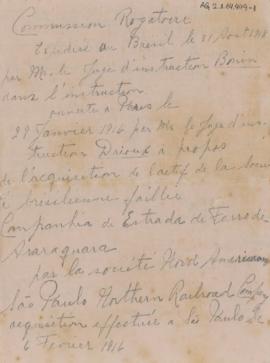 AG.2.1.64.409-1
Commission Rogatoire
Expédiée au Bresil le 31 Août 1918
par Mr. le Juge d'instruction Bonin
dans l'instruction
ouverte à Paris le
29 Janvier 1916 par Mr le Juge d'ins-
truction Drioux à propos
de l'acquisition de l'actif de la société
bresilienne faillie
Companhia de Estrada de Ferro de
Araraquara
par la société Nord Américaine
São Paulo Northern Railroad Company
acquisition effectuée a São Paulo le
6 Fevrier 1916